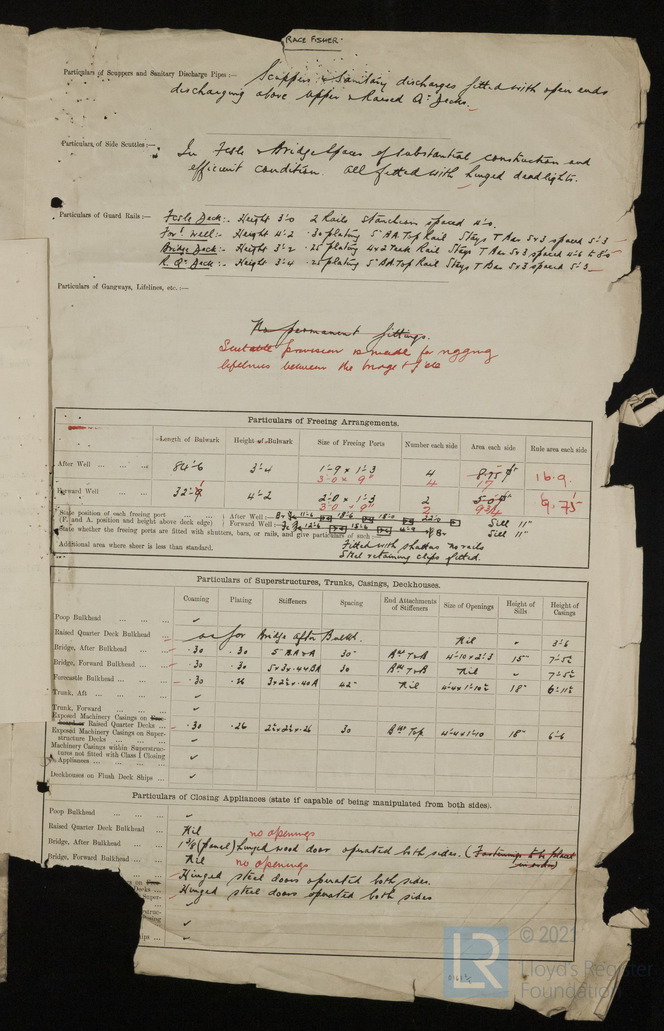 RACE FISHER.
Particulars of Scuppers and Sanitary Discharge Pipes :— Scuppers & Sanitary discharges fitted with open ends
discharging above upper & Raised Qr Decks.
Particulars of Side Scuttles:— In Fcsle & Bridge Spaces of substantial construction and
efficient condition. All fitted with hinged deadlights.
Particulars of Guard Rails :— Fcsle Deck:- Height 3'-0 2 Rails Stanchion spaced 4'-0.
For'd Well:- Height 4'-2 .30 plating 5" BA Top Rail Stays T Bar 5x3 spaced 5'-3
Bridge Deck:- Height 3'-2 .25 plating 4x2 Teak Rail Stays T Bar 5x3 spaced 4'-6 to 5'-0
R. Qr Deck:- Height 3'-4 .25 plating 5" BA Top Rail Stays T Bar 5x3 spaced 5'-3.
Particulars of Gangways, Lifelines, etc. :—
No permanent fittings.
Suitable provision is made for rigging
lifelines between the bridge & fcle
Particulars of Freeing Arrangements.
Length of Bulwark Height of Bulwark Size of Freeing Ports Number each side Area each side Rule area each side
After Well ... ... ... 84'-6 3'-4 1'-9 x 1'-3 4 8.75
3'-0 x 9" 4 17 16.9.
Forward Well ... 32'-9 4'-2 2'-0 x 1'-3 2 5.0
3'-0 x 9" 9.75
State position of each freeing port After Well :—
(F. and A. position and height above deck edge) Forward Well :— Sill 11"
Sill 11"
State whether the freeing ports are fitted with shutters, bars, or rails, and give particulars of such :—
Additional area where sheer is less than standard. Fitted with shutters no rails
Steel retaining clips fitted.
Particulars of Superstructures, Trunks, Casings, Deckhouses.
Coaming Plating Stiffeners Spacing End Attachments of Stiffeners Size of Openings Height of Sills Height of Casings
Poop Bulkhead
Raised Quarter Deck Bulkhead as for Bridge After Bulkd. Nil - 3'-6
Bridge, After Bulkhead ... .30 .30 30" 4'-10 x 2'-3 15" 7'-5½
Bridge, Forward Bulkhead ... .30 .30 5x3x.44 BA 30 Nil - 7'-5½
Forecastle Bulkhead ... .30 .26 3x2½x.40A 42" Nil 18" 6'-11½
Trunk, Aft ... ...
Trunk, Forward ... ...
Exposed Machinery Casings on
Raised Quarter Decks ... .30 .26 2½x2½x.26 30 4'-4x1'-10 18" 6'-6
Exposed Machinery Casings on Super-
structure Decks ... ...
Machinery Casings within Superstruc-
tures not fitted with Class I Closing
Appliances ... ... ...
Deckhouses on Flush Deck Ships ...
Particulars of Closing Appliances (state if capable of being manipulated from both sides).
Poop Bulkhead ... ...
Raised Quarter Deck Bulkhead ... Nil no openings
Bridge, After Bulkhead ... 1⅝ (panel) hinged wood door operated both sides. (Fastenings to be placed
in order)
Bridge, Forward Bulkhead ... Nil no openings
Hinged steel doors operated both sides.
Hinged steel doors operated both sides
LR
© 2021
Lloyd's Register
Foundation